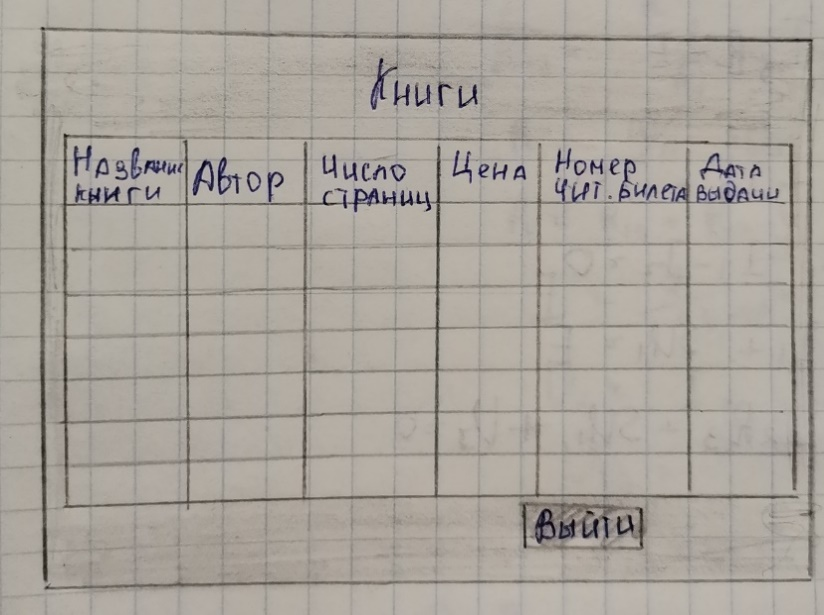 Книги
Название
книги
Автор
Число
страниц
Цена
Номер
чит. билета
Дата
выдачи
Выйти